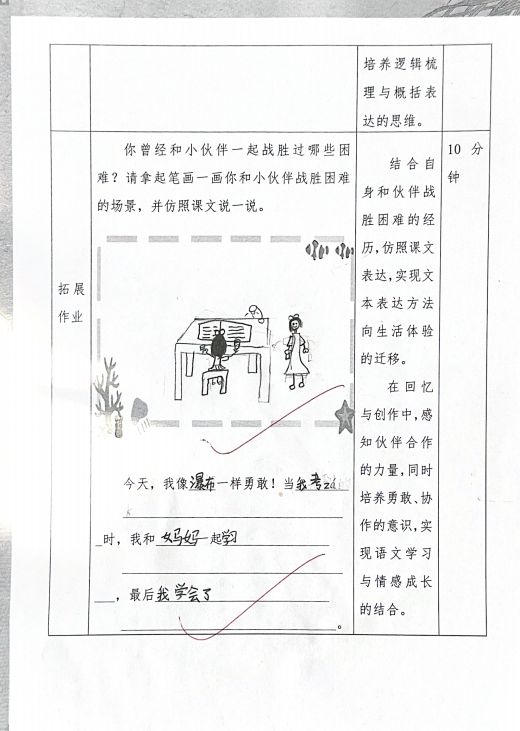 培养逻辑梳
理与概括表
达的思维。
拓展
作业
你曾经和小伙伴一起战胜过哪些困
难？请拿起笔画一画你和小伙伴战胜困难
的场景，并仿照课文说一说。
今天，我像瀑布一样勇敢！当我考
时，我和妈妈一起学习
，最后我学会了
。
结合自
身和伙伴战
胜困难的经
历，仿照课文
表达，实现文
本表达方法
向生活体验
的迁移。
在回忆
与创作中，感
知伙伴合作
的力量，同时
培养勇敢、协
作的意识，实
现语文学习
与情感成长
的结合。
10 分
钟